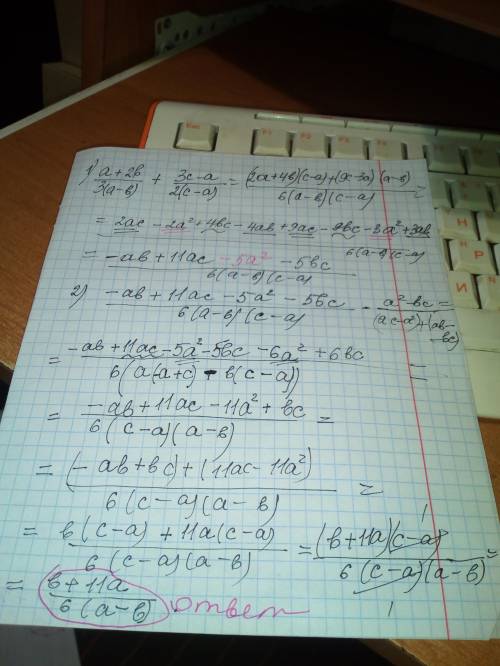 1) (a+2b)/(3(a-b)) + (3c-a)/(2(c-a)) = ((2a+4b)(c-a)+(9c-3a)(a-b))/(6(a-b)(c-a)) =
= (2ac-2a²+4bc-4ab+9ac-9bc-3a²+3ab)/(6(a-b)(c-a))
= (-ab+11ac-5a²-5bc)/(6(a-b)(c-a))
2) (-ab+11ac-5a²-5bc)/(6(a-b)(c-a)) - (a²-bc)/((ac-a²)+(ab-bc)) =
= (-ab+11ac-5a²-5bc-6a²+6bc)/(6(a(-a+c)-b(c-a))) =
= (-ab+11ac-11a²+bc)/(6(c-a)(a-b)) =
= ((-ab+bc)+(11ac-11a²))/(6(c-a)(a-b)) =
= (b(c-a)+11a(c-a))/(6(c-a)(a-b)) = ((b+11a)(c-a))/(6(c-a)(a-b)) =
= (b+11a)/(6(a-b)) ответ